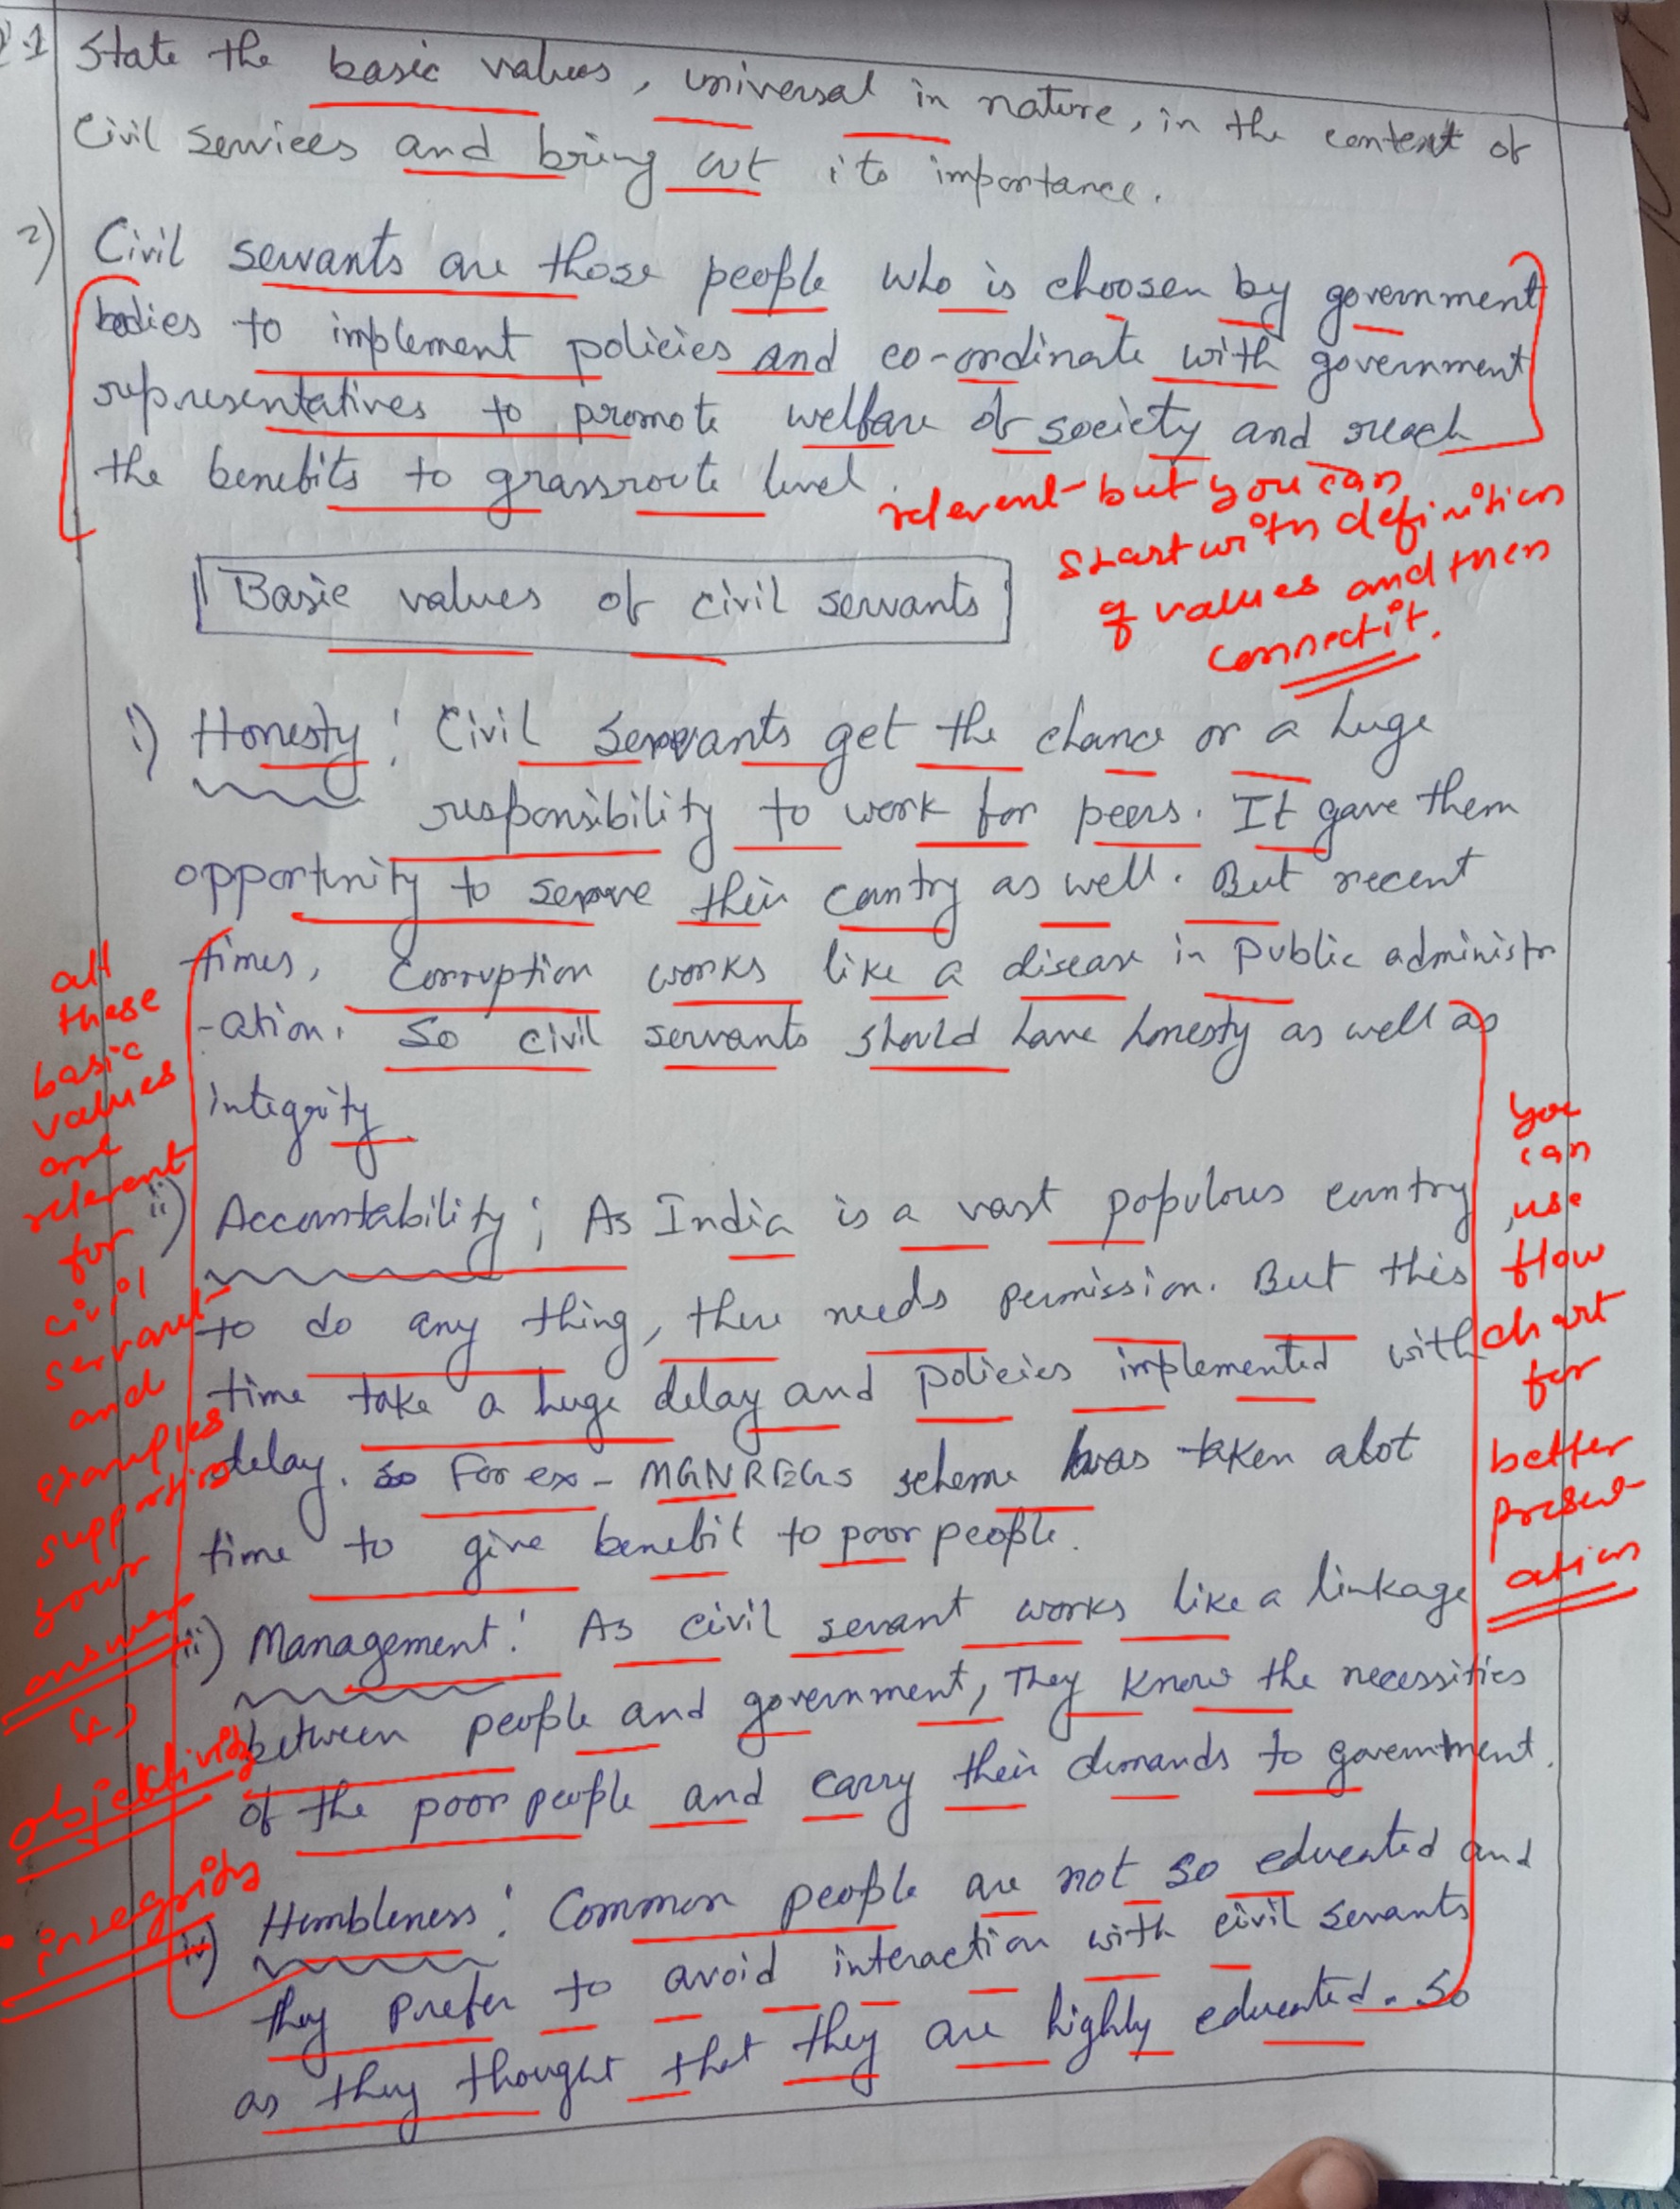 Q.1 State the basic values, universal in nature, in the context of
Civil Services and bring out its importance.
2) Civil servants are those people who is choosen by government
bodies to implement policies and co-ordinate with government
representatives to promote welfare of society and reach
the benefits to grassroute level.
relevent but you can
start with definition
of values and then
connect it.
Basic values of civil servants
i) Honesty: Civil Servants get the chance or a huge
responsibility to work for peers. It gave them
opportunity to serve their country as well. But recent
times, Corruption works like a disease in public administr
-ation. So civil servants should have honesty as well as
integrity.
ii) Accountability: As India is a vast populous country
to do any thing, there needs permission. But this
time take a huge delay and policies implemented with
delay. For ex- MGNREGS scheme has taken alot
time to give benefit to poor people.
iii) Management: As civil servant works like a linkage
between people and government, They know the necessities
of the poor people and carry their demands to government.
iv) Humbleness: Common people are not so educated and
they prefer to avoid interaction with civil servants
as they thought that they are highly educated. So
all
these
basic
values
are
relevent
for
civil
servant
and
examples
supporting
your
answer
(+)
objectivity
• integrity
you
can
use
flow
chart
for
better
present-
ation